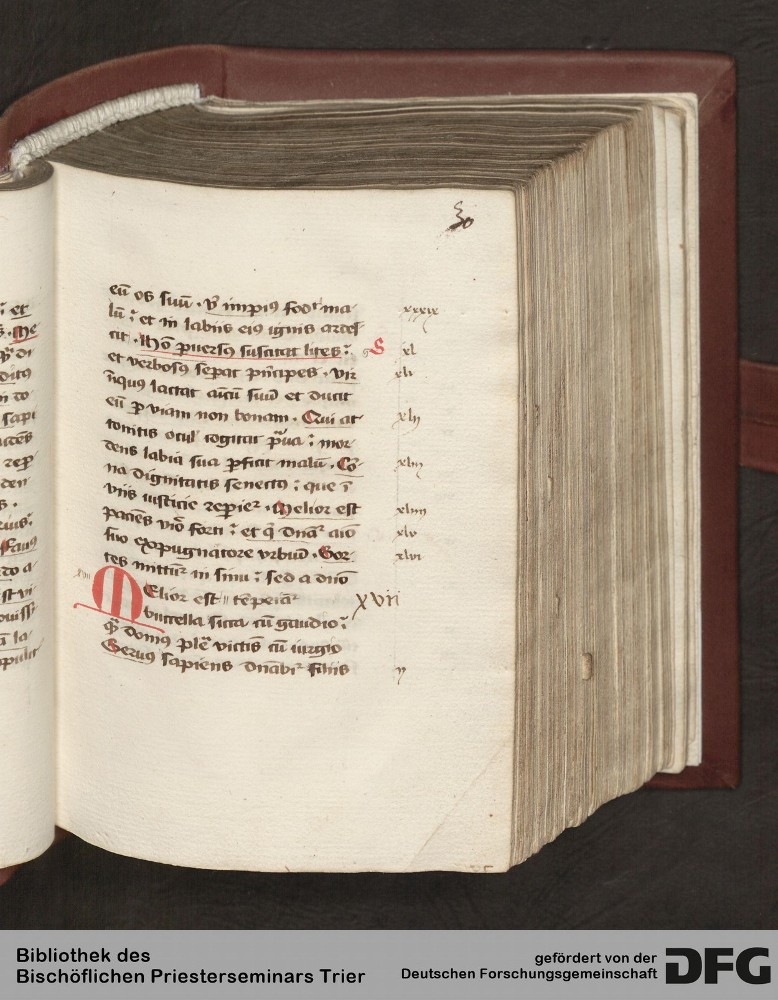 30
eū os suū · vˀ impiꝰ fodᵗ ma-
lū ⁊ et in labiis eiꝰ ignis ardes-
cit · Hō ꝑuersꝰ suscitat lites ⁊
et verbosꝰ seꝑat pncipes · Vir
iniquꝰ lactat aīcū suū et ducit
eū ꝑ viam non bonam · Qui at-
tonitis ocul cogitat pᵘa ⁊ mor-
dens labia sua ꝑficit malū · Co-
na dignitatis senectꝰ ⁊ que ī
viis iusticie repieᵗ · Melior est
paciēs viō forti ⁊ et q dnāᵗ aīo
suo expugnatore vrbiū · Sor-
tes mittūᵗ in sinū ⁊ sed a dnō
Melior est tēperāᵗ
buccella sicca cū gaudio ⁊
qᵃ domꝰ plē victīs cū iurgio
Seruꝰ sapiens dnābiᵗ filiis
xxxix
xl
xli
xlij
xliij
xliiij
xlv
xlvi
xvii
XVII
ij
Bibliothek des
Bischöflichen Priesterseminars Trier
gefördert von der
Deutschen Forschungsgemeinschaft
DFG